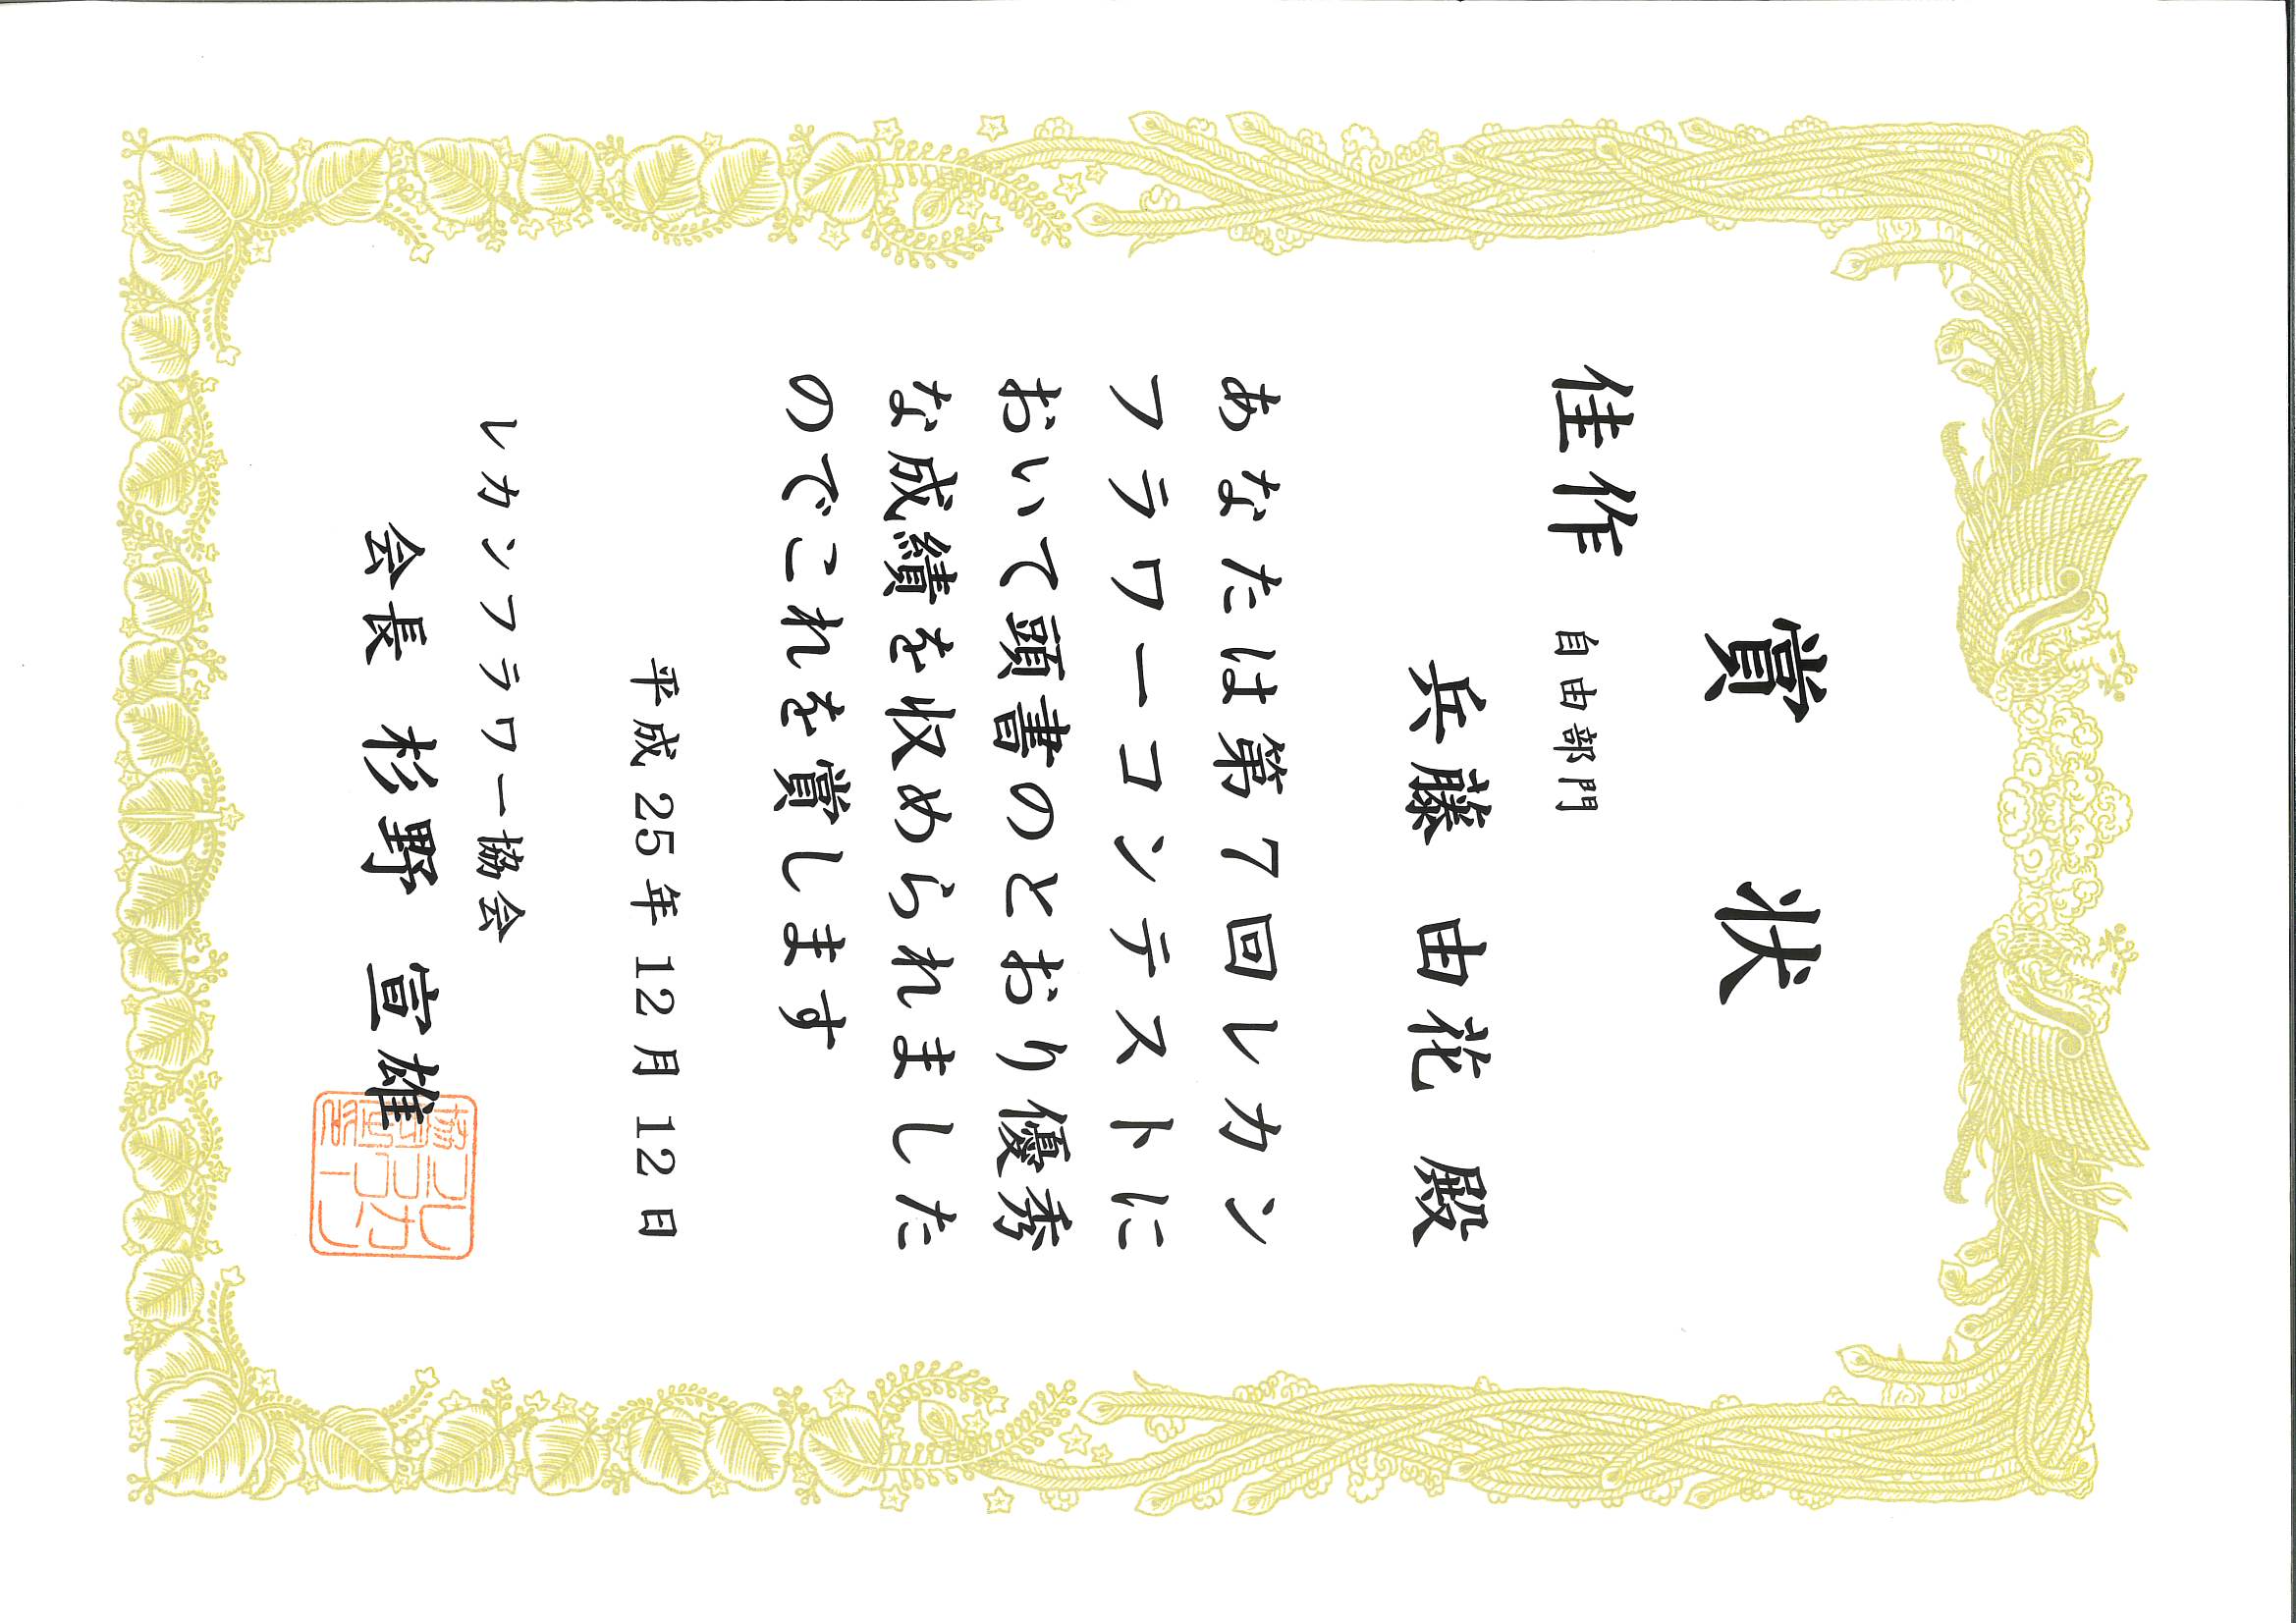 賞状
佳作 自由部門
兵藤 由花 殿
あなたは第7回レカン
フラワーコンテストに
おいて頭書のとおり優秀
な成績を収められました
のでこれを賞します
平成25年12月12日
レカンフラワー協会
会長 杉野 宣雄